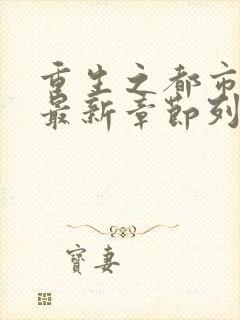 重生之都市
最新章节列
寶妻